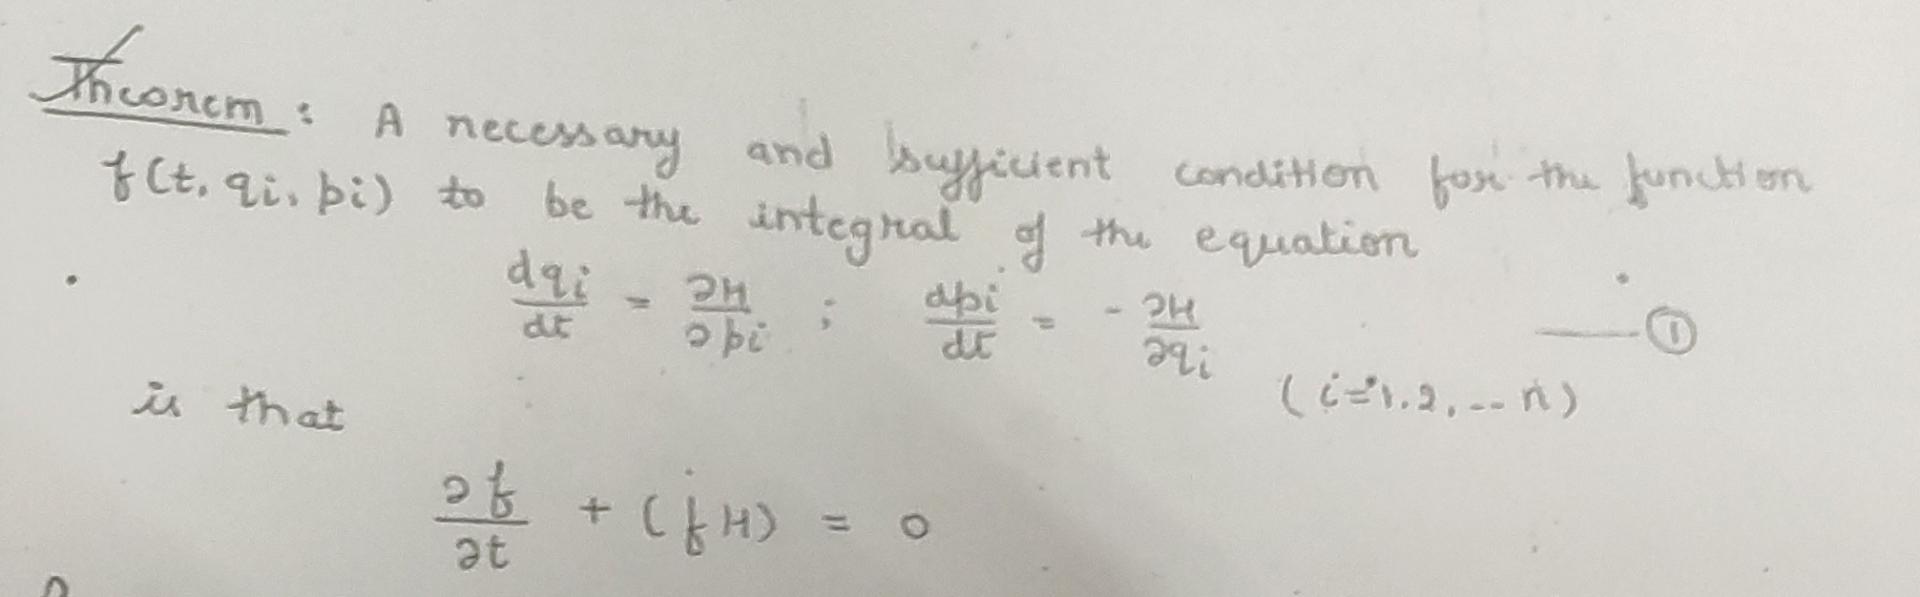 Theorem : A necessary and sufficient condition for the function
f(t, qi, pi) to be the integral of the equation
dqi/dt = ∂H/∂pi ; dpi/dt = - ∂H/∂qi —— ①
(i=1,2,-- n)
is that
∂f/∂t + (f H) = 0